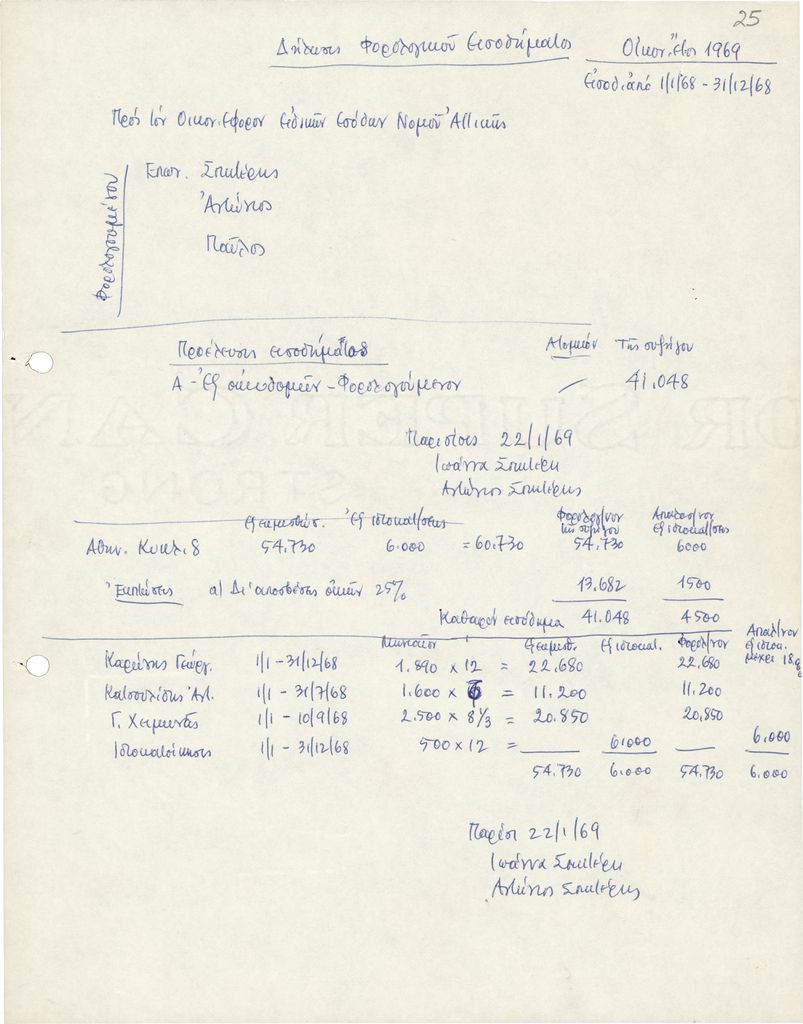 25
Δήλωσις Φορολογικού Εισοδήματος Οικον. Έτος 1969
Εισοδ. από 1/1/68 - 31/12/68
Πρός τόν Οικον. Έφορον Ειδικών Εσόδων Νομού Αττικής
Φορολογουμένου
Επων. Σπετέρης
Αντώνιος
Παύλος
Προέλευσις εισοδήματος Ατομικόν Της συζύγου
Α - Εξ οικοδομών - Φορολογούμενον / 41.048
Παρίσιοις 22/1/69
Ιωάννα Σπετέρη
Αντώνιος Σπετέρης
εξ εκμισθώσ. Εξ ιδιοκατ/σεως Φορολογ/νον της συζύγου Απαλασ/νον εξ ιδιοκατ/σεις
Αθην. Κυκλ. 8 54.730 6.000 = 60.730 54.730 6000
Εκπτώσεις α) Δι' αποσβέσεις οικιών 25% 13.682 1500
Καθαρόν εισόδημα 41.048 4500
Μηνιαίον Εξ εκμισθ. Εξ ιδιοκατ. Φορολ/νον Απαλ/νον εξ ιδιοκ. μέχρι
Καρώνης Γεώργ. 1/1 - 31/12/68 1.890 x 12 = 22.680 22.680
Κατσουλίδης Αντ. 1/1 - 31/7/68 1.600 x = 11.200 11.200
Γ. Χειμωνάς 1/1 - 10/9/68 2.500 x 8 1/3 = 20.850 20.850
Ιδιοκατοίκησις 1/1 - 31/12/68 500 x 12 = 6.000 6.000
54.730 6.000 54.730 6.000
Παρίσι 22/1/69
Ιωάννα Σπετέρη
Αντώνιος Σπετέρης